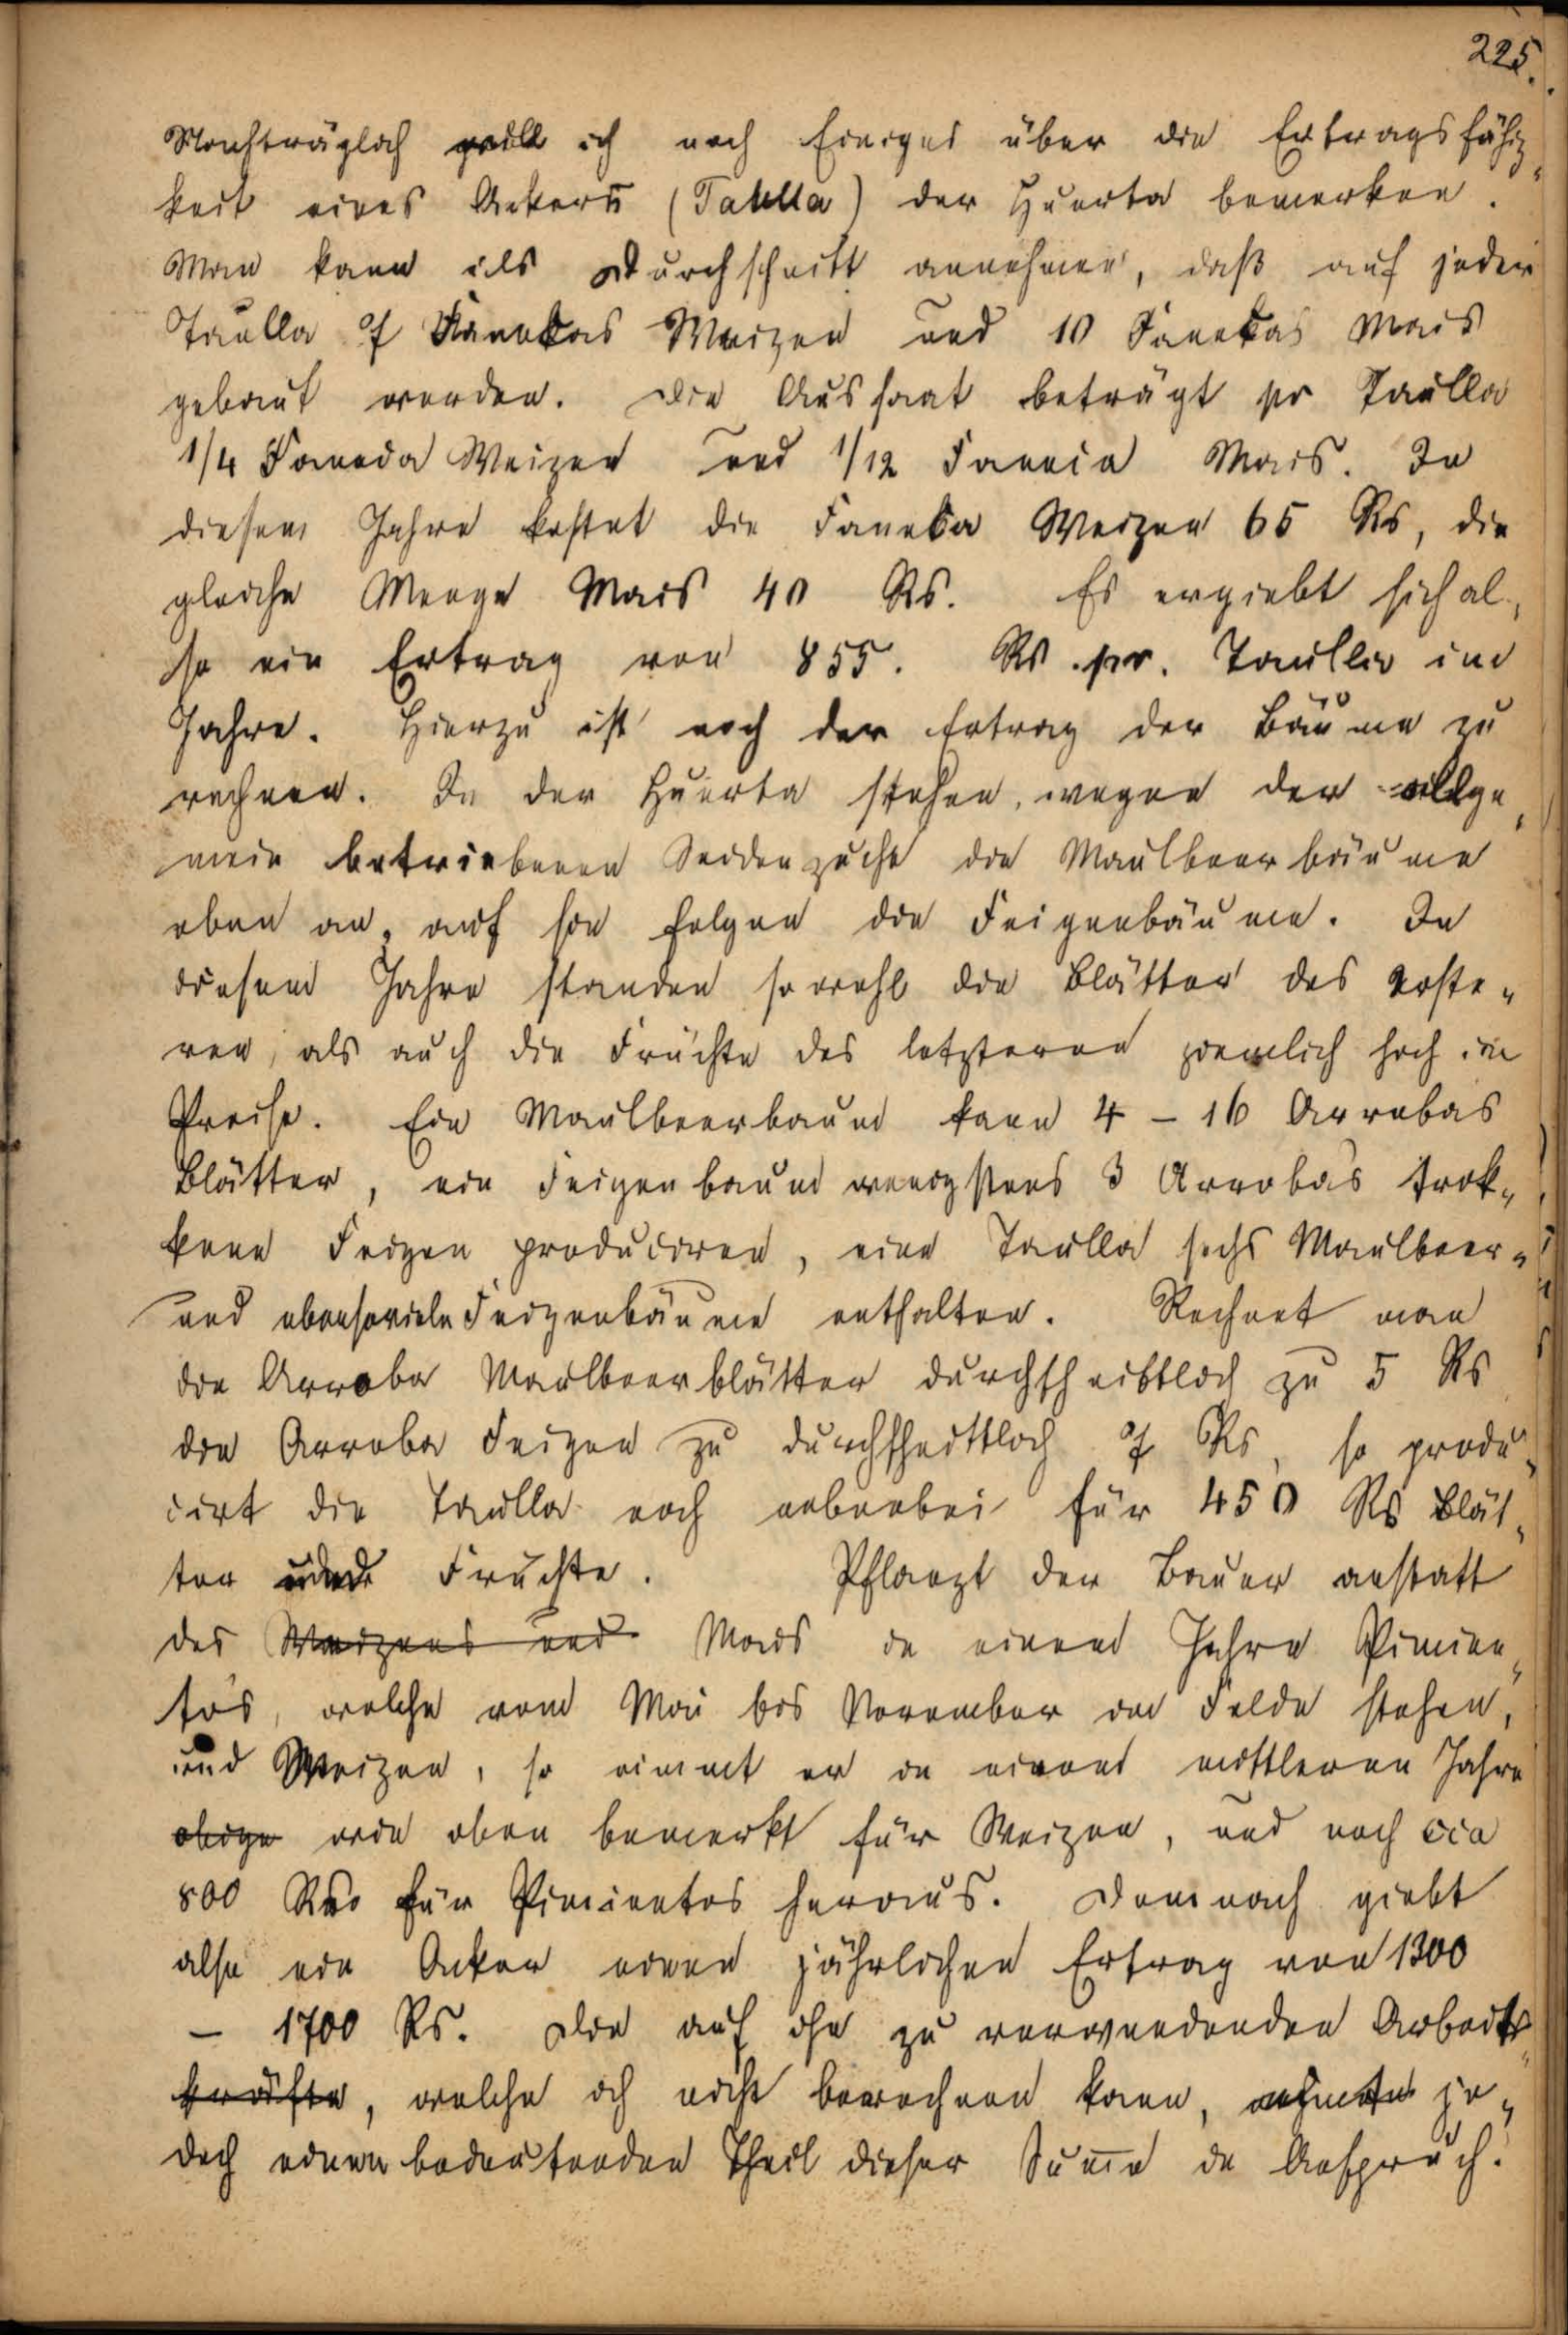 225.
Nachträglich will ich noch Einiges über die Ertragsfähig„
keit eines Ackers (Tahulla) der Huerta bemerken.
Man kann als Durchschnitt annehmen, daß auf jeder
Taulla 7 Fanekas Weizen und 10 Fanekas Mais
gebaut werden. Die Aussaat beträgt pr Taulla
1/4 Faneda Weizen und 1/12 Faneca Mais. In
diesem Jahre kostet die Faneka Weizen 65 Rs, die
gleiche Menge Mais 40 Rs. Es ergiebt sich al„
so ein Ertrag von 855. Rs pr. Taulla im
Jahre. Hierzu ist noch der Ertrag der Bäume zu
rechnen. In der Huerta stehen, wegen der allge„
mein betriebenen Seidenzucht die Maulbeerbäume
oben an, auf sie folgen die Feigenbäume. In
diesem Jahre standen sowohl die Blätter des erste„
ren, als auch die Früchte des letzteren ziemlich hoch im
Preise. Ein Maulbeerbaum kann 4 – 16 Arrobas
Blätter, ein Feigenbaum wenigstens 3 Arrobas trok„
kene Feigen produciren, eine Taulla sechs Maulbeer„
und ebensoviele Feigenbäume enthalten. Rechnet man
die Arroba Maulbeerblätter durchschnittlich zu 5 Rs
die Arroba Feigen zu durchschnittlich 7 Rs, so produ„
cirt die Taulla noch nebenbei für 450 Rs Blät„
ter und Früchte. Pflanzt der Bauer anstatt
des Weizens und Mais in einem Jahre Pimien„
tos, welche vom Mai bis November im Felde stehen,
und Weizen, so nimmt er in einem mittleren Jahre
obige wie oben bemerkt für Weizen, und noch cca
800 Rs für Pimientos heraus. Demnach giebt
also ein Acker einen jährlichen Ertrag von 1300
– 1700 Rs. Die auf ihn zu verwendenden Arbeits„
kräfte, welche ich nicht berechnen kann, nehmen je„
doch einen bedeutenden Theil dieser Sum̄e in Anspruch.